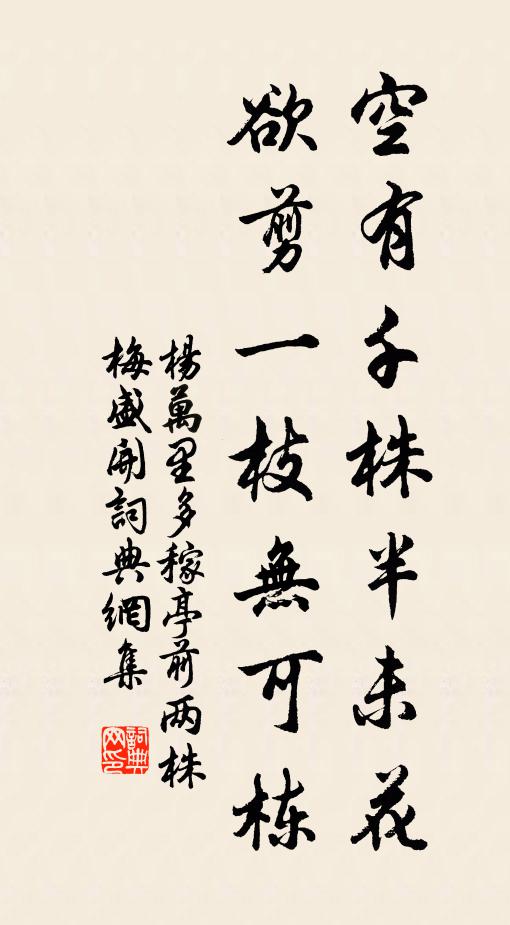 空有千株半未花
欲剪一枝無可栋
楊萬里多稼亭前两株
梅盛開詞典網集
詞典
网印